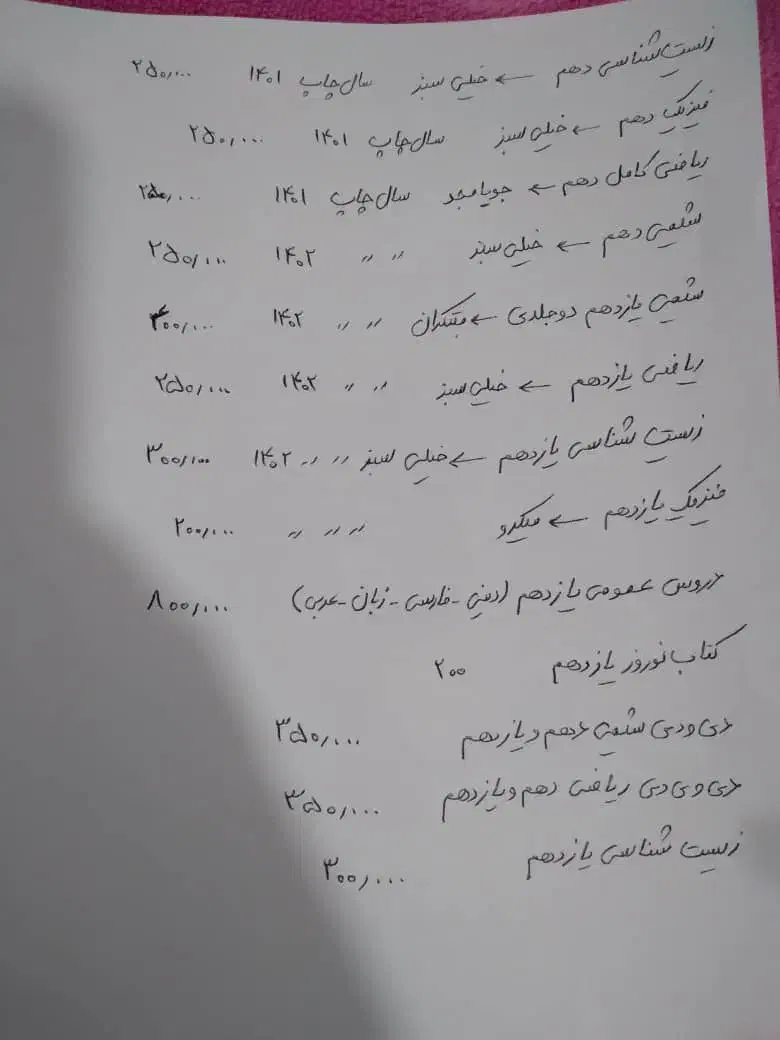 زیست شناسی دهم ← خیلی سبز سال چاپ ۱۴۰۱ ۲۵۰,۰۰۰
فیزیک دهم ← خیلی سبز سال چاپ ۱۴۰۱ ۲۵۰,۰۰۰
ریاضی کامل دهم ← جویا مجد سال چاپ ۱۴۰۱ ۲۵۰,۰۰۰
شیمی دهم ← خیلی سبز 〃 〃 ۱۴۰۲ ۲۵۰,۰۰۰
شیمی یازدهم دو جلدی ← مبتکران 〃 〃 ۱۴۰۲ ۴۰۰,۰۰۰
ریاضی یازدهم ← خیلی سبز 〃 〃 ۱۴۰۲ ۲۵۰,۰۰۰
زیست شناسی یازدهم ← خیلی سبز 〃 〃 ۱۴۰۲ ۳۰۰,۰۰۰
فیزیک یازدهم ← میکرو 〃 〃 〃 ۲۰۰,۰۰۰
دروس عمومی یازدهم (دینی - فارسی - زبان - عربی) ۸۰۰,۰۰۰
کتاب نوروز یازدهم ۲۰۰
دی وی دی شیمی دهم و یازدهم ۳۵۰,۰۰۰
دی وی دی ریاضی دهم و یازدهم ۳۵۰,۰۰۰
زیست شناسی یازدهم ۳۰۰,۰۰۰